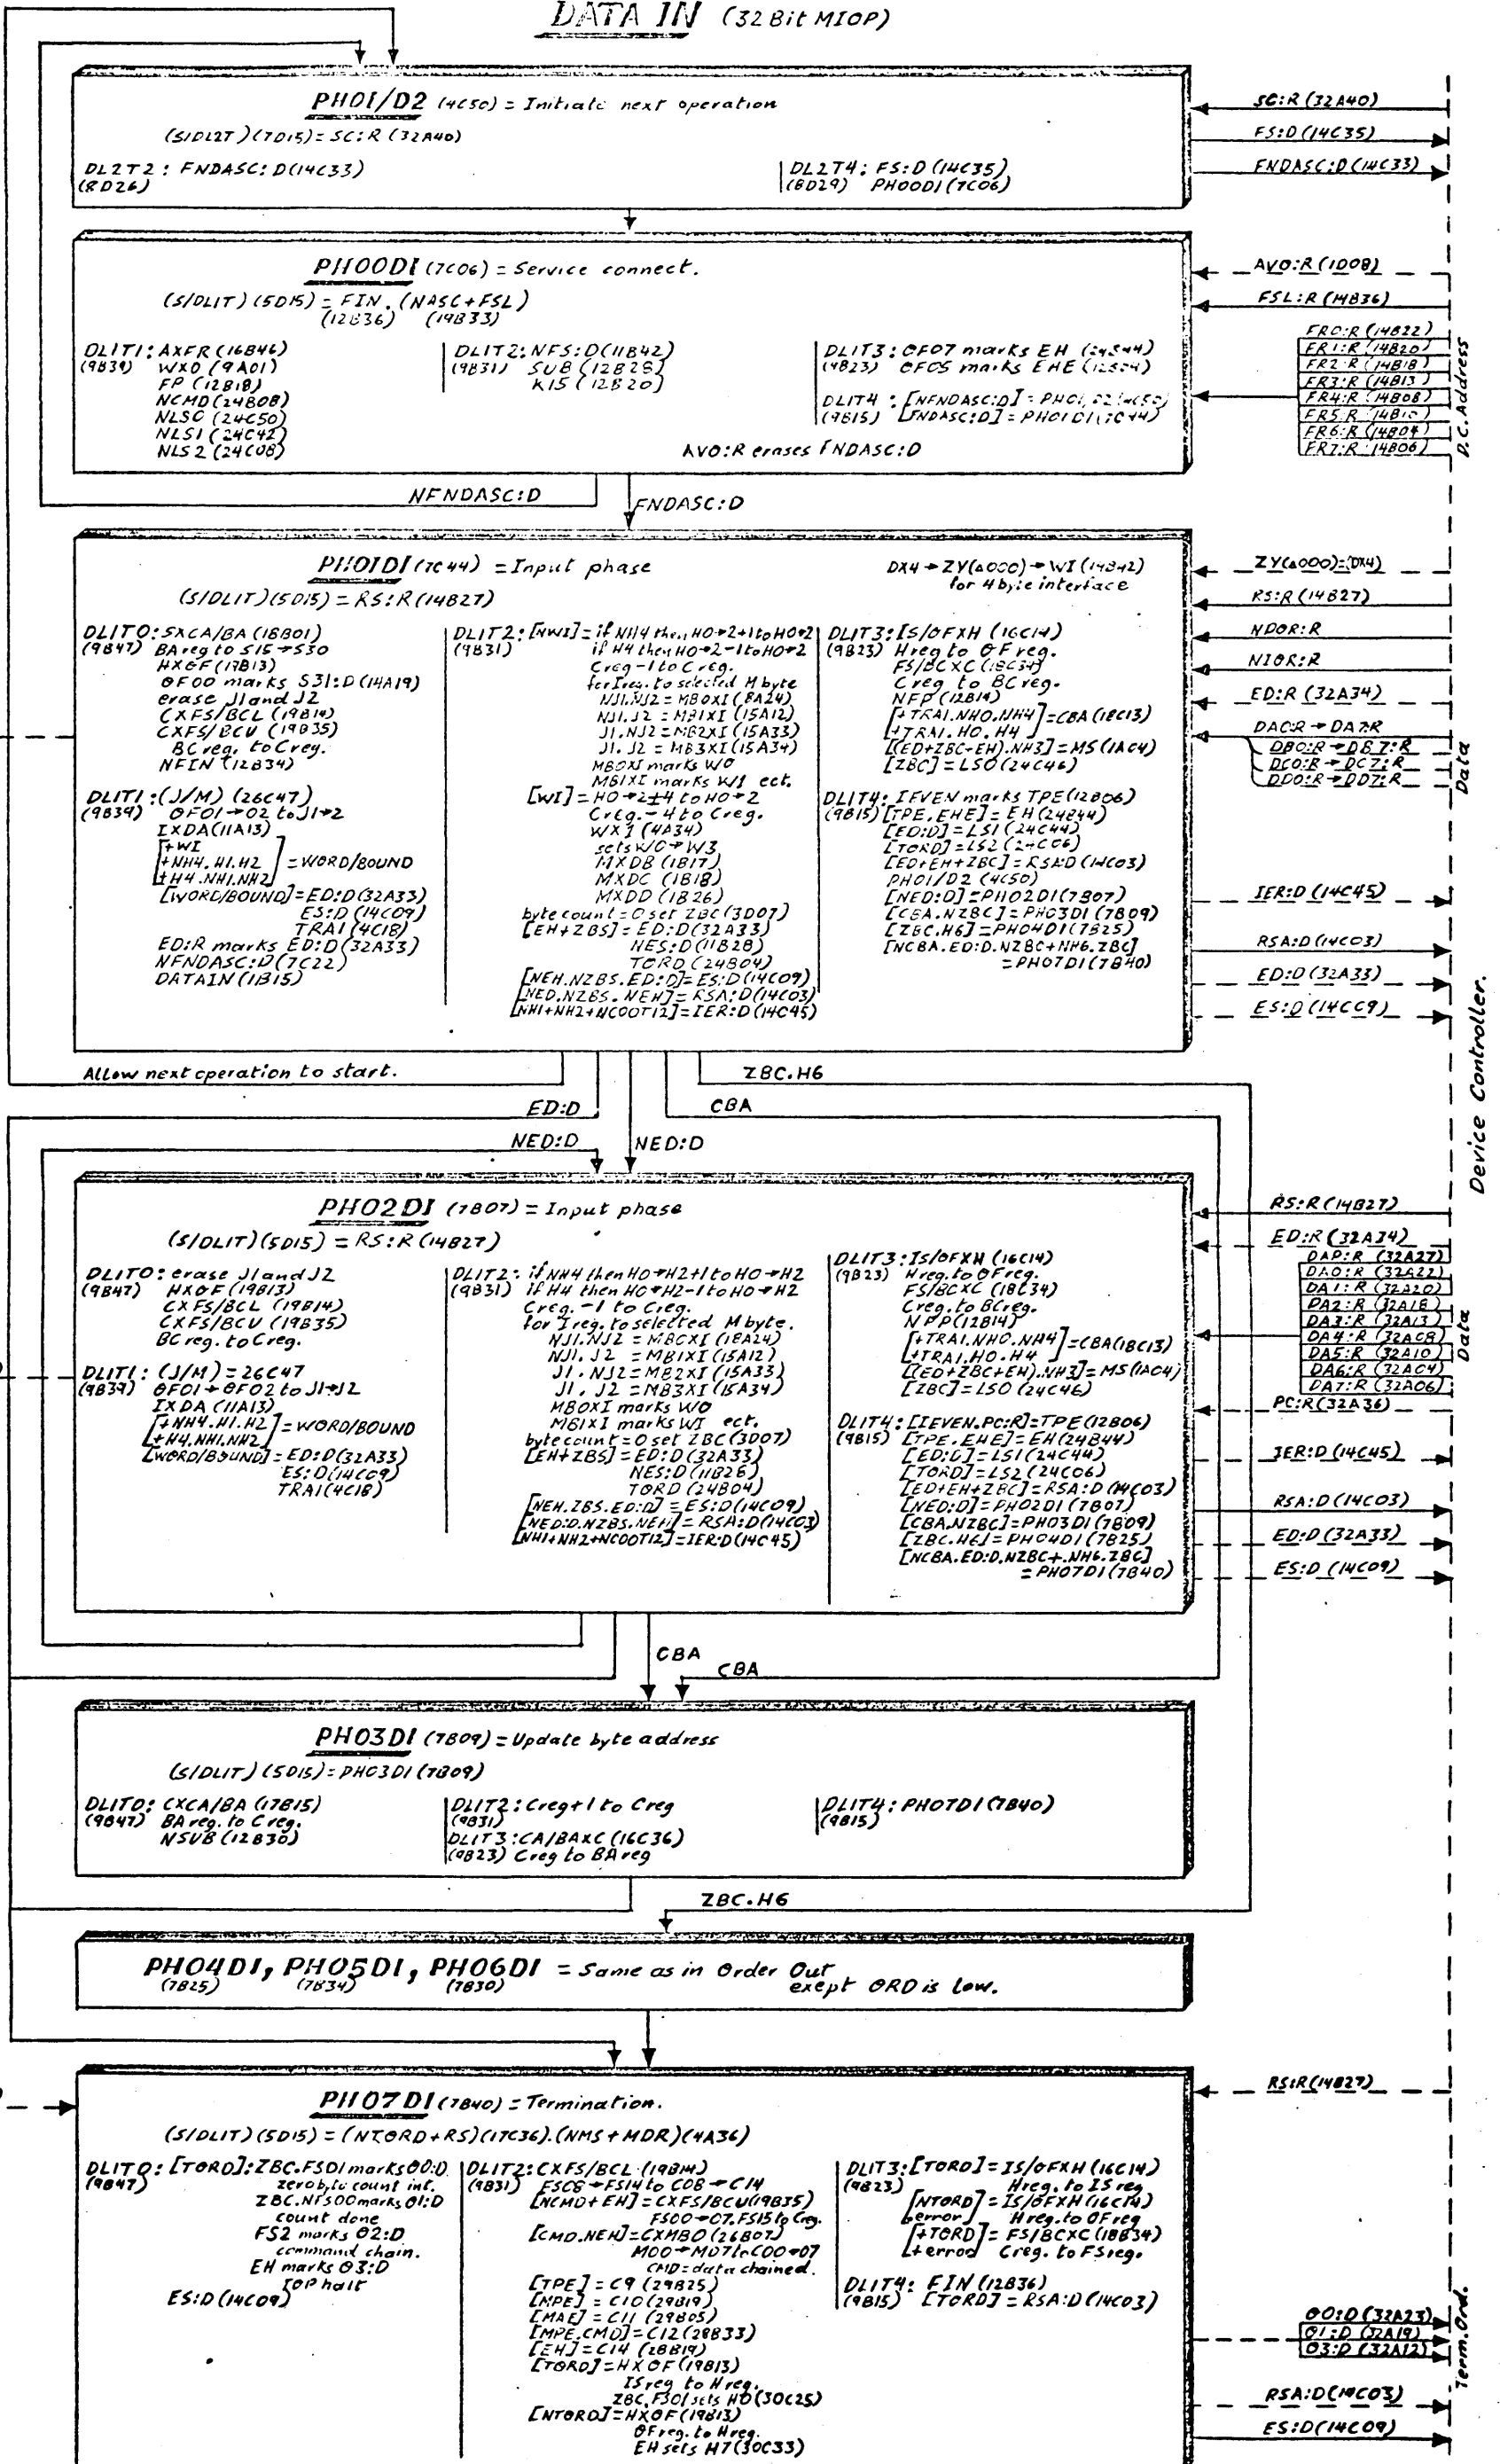 DATA IN (32 Bit MIOP)
PH01/D2 (4C50) = Initiate next operation
(S/DL2T)(7D15) = SC:R (32A40)
DL2T2: FNDASC:D (14C33)
(8D26)
DL2T4: FS:D (14C35)
(8D29) PH00DI (7C06)
SC:R (32A40)
FS:D (14C35)
FNDASC:D (14C33)
PH00DI (7C06) = Service connect.
(S/DL1T)(5D15) = FIN. (NASC+FSL)
(12B36) (19B33)
DL1T1: AXFR (16B46)
(9B39) WX0 (9A01)
FP (12B18)
NCMD (24B08)
NLS0 (24C50)
NLS1 (24C42)
NLS2 (24C08)
DL1T2: NFS:D (11B42)
(9B31) SUB (12B28)
K15 (12B20)
DL1T3: OF07 marks EH (24B44)
(9B23) OF05 marks EHE
DL1T4: [NFNDASC:D] = PH01/D2 (4C50)
(9B15) [FNDASC:D] = PH01DI (7C44)
AVO:R erases FNDASC:D
AVO:R (1D08)
FSL:R (14B36)
FR0:R (14B22)
FR1:R (14B20)
FR2:R (14B18)
FR3:R (14B13)
FR4:R (14B08)
FR5:R (14B10)
FR6:R (14B04)
FR7:R (14B06)
D.C. Address
NFNDASC:D
FNDASC:D
PH01DI (7C44) = Input phase
DX4→ZY(4000)→WI (14B42)
for 4 byte interface
(S/DL1T)(5D15) = RS:R (14B27)
DL1T0: SXCA/BA (18B01)
(9B47) BA reg to S15→S30
HXOF (19B13)
OF00 marks S31:D (14A19)
erase J1 and J2
CXFS/BCL (19B14)
CXFS/BCU (19B35)
BC reg. to Creg.
NFIN (12B34)
DL1T1: (J/M) (26C47)
(9B39) OF01→02 to J1→2
IXDA (11A13)
[+WI
+NH4.H1.H2] = WORD/BOUND
[+H4.NH1.NH2]
[WORD/BOUND] = ED:D (32A33)
ES:D (14C09)
TRA1 (4C18)
ED:R marks ED:D (32A33)
NFNDASC:D (7C22)
DATAIN (1B15)
DL1T2: [NWI] = if NH4 then H0→2+1 to H0→2
(9B31) if H4 then H0→2-1 to H0→2
Creg -1 to Creg.
for Ireg. to selected M byte
NJ1.NJ2 = MB0XI (8A24)
NJ1.J2 = MB1XI (15A12)
J1.NJ2 = MB2XI (15A33)
J1.J2 = MB3XI (15A34)
MB0XI marks W0
MB1XI marks W1 ect.
[WI] = H0→2±4 to H0→2
Creg. -4 to Creg.
WX1 (4A34)
sets W0→W3
MXDB (1B17)
MXDC (1B18)
MXDD (1B26)
byte count = 0 set ZBC (3D07)
[EH+ZBS] = ED:D (32A33)
NES:D (11B28)
TORD (24B04)
[NEH.NZBS.ED:D] = ES:D (14C09)
[NED.NZBS.NEH] = RSA:D (14C03)
[NH1+NH2+NCOOT12] = IER:D (14C45)
DL1T3: IS/OFXH (16C14)
(9B23) Hreg to OF reg.
FS/BCXC (18C34)
Creg to BCreg.
NFP (12B14)
[+TRA1.NH0.NH4] = CBA (18C13)
[+TRA1.H0.H4]
[(ED+ZBC+EH).NH3] = MS (1A04)
[ZBC] = LS0 (24C46)
DL1T4: IEVEN marks TPE (12B06)
(9B15) [TPE.EHE] = EH (24B44)
[ED:D] = LS1 (24C44)
[TORD] = LS2 (24C06)
[ED+EH+ZBC] = RSA:D (14C03)
PH01/D2 (4C50)
[NED:D] = PH02DI (7B07)
[CBA.NZBC] = PH03DI (7B09)
[ZBC.H6] = PH04DI (7B25)
[NCBA.ED:D.NZBC+NH6.ZBC]
= PH07DI (7B40)
ZY(4000)=(DX4)
RS:R (14B27)
NDOR:R
NIOR:R
ED:R (32A34)
DA0:R→DA7:R
DB0:R→DB7:R
DC0:R→DC7:R
DD0:R→DD7:R
Data
IER:D (14C45)
RSA:D (14C03)
ED:D (32A33)
ES:D (14C09)
Device Controller.
Allow next operation to start.
ZBC.H6
ED:D
CBA
NED:D
NED:D
PH02DI (7B07) = Input phase
(S/DL1T)(5D15) = RS:R (14B27)
DL1T0: erase J1 and J2
(9B47) HXOF (19B13)
CXFS/BCL (19B14)
CXFS/BCU (19B35)
BC reg. to Creg.
DL1T1: (J/M) = 26C47
(9B39) OF01→OF02 to J1→J2
IXDA (11A13)
[+NH4.H1.H2] = WORD/BOUND
[+H4.NH1.NH2]
[WORD/BOUND] = ED:D (32A33)
ES:D (14C09)
TRA1 (4C18)
DL1T2: if NH4 then H0→H2+1 to H0→H2
(9B31) if H4 then H0→H2-1 to H0→H2
Creg. -1 to Creg.
for Ireg. to selected M byte.
NJ1.NJ2 = MB0XI (18A24)
NJ1.J2 = MB1XI (15A12)
J1.NJ2 = MB2XI (15A33)
J1.J2 = MB3XI (15A34)
MB0XI marks W0
MB1XI marks W1 ect.
byte count = 0 set ZBC (3D07)
[EH+ZBS] = ED:D (32A33)
NES:D (11B26)
TORD (24B04)
[NEH.ZBS.ED:D] = ES:D (14C09)
[NED:D.NZBS.NEH] = RSA:D (14C03)
[NH1+NH2+NCOOT12] = IER:D (14C45)
DL1T3: IS/OFXH (16C14)
(9B23) Hreg. to OFreg.
FS/BCXC (18C34)
Creg. to BCreg.
NFP (12B14)
[+TRA1.NH0.NH4] = CBA (18C13)
[+TRA1.H0.H4]
[(ED+ZBC+EH).NH3] = MS (1A04)
[ZBC] = LS0 (24C46)
DL1T4: [IEVEN.PC:R] = TPE (12B06)
(9B15) [TPE.EHE] = EH (24B44)
[ED:D] = LS1 (24C44)
[TORD] = LS2 (24C06)
[ED+EH+ZBC] = RSA:D (14C03)
[NED:D] = PH02DI (7B07)
[CBA.NZBC] = PH03DI (7B09)
[ZBC.H6] = PH04DI (7B25)
[NCBA.ED:D.NZBC+.NH6.ZBC]
= PH07DI (7B40)
RS:R (14B27)
ED:R (32A34)
DAP:R (32A27)
DA0:R (32A22)
DA1:R (32A20)
DA2:R (32A18)
DA3:R (32A13)
DA4:R (32A08)
DA5:R (32A10)
DA6:R (32A04)
DA7:R (32A06)
Data
PC:R (32A36)
IER:D (14C45)
RSA:D (14C03)
ED:D (32A33)
ES:D (14C09)
CBA
CBA
PH03DI (7B09) = Update byte address
(S/DL1T)(5D15) = PH03DI (7B09)
DL1T0: CXCA/BA (17B15)
(9B47) BA reg. to Creg.
NSUB (12B30)
DL1T2: Creg+1 to Creg
(9B31)
DL1T3: CA/BAXC (16C36)
(9B23) Creg to BA reg
DL1T4: PH07DI (7B40)
(9B15)
ZBC.H6
PH04DI, PH05DI, PH06DI = Same as in Order Out
(7B25) (7B34) (7B30) exept ORD is low.
PH07DI (7B40) = Termination.
(S/DL1T)(5D15) = (NTORD+RS)(17C36).(NMS+MDR)(4A36)
DL1T0: [TORD]: ZBC.FSD1 marks O0:D
(9B47) zero byte count int.
ZBC.NFS00 marks O1:D
count done
FS2 marks O2:D
command chain.
EH marks O3:D
IOP halt
ES:D (14C09)
DL1T2: CXFS/BCL (19B14)
(9B31) FS08→FS14 to C08→C14
[NCMD+EH] = CXFS/BCU (19B35)
FS00→07.FS15 to Creg.
[CMD.NEH] = CXMB0 (26B07)
M00→M07 to C00→07
CMD = data chained.
[TPE] = C9 (29B25)
[MPE] = C10 (29B19)
[MAE] = C11 (29B05)
[MPE.CMD] = C12 (28B33)
[EH] = C14 (28B19)
[TORD] = HXOF (19B13)
IS reg to Hreg.
ZBC.FS01 sets H0 (30C25)
[NTORD] = HXOF (19B13)
OFreg. to Hreg.
EH sets H7 (30C33)
DL1T3: [TORD] = IS/OFXH (16C14)
(9B23) Hreg. to IS reg
[NTORD] = IS/OFXH (16C14)
error] Hreg. to OF reg
[+TORD] = FS/BCXC (18B34)
[+error] Creg. to FSreg.
DL1T4: FIN (12B36)
(9B15) [TORD] = RSA:D (14C03)
RS:R (14B27)
O0:D (32A23)
O1:D (32A19)
O3:D (32A12)
Term. Ord.
RSA:D (14C03)
ES:D (14C09)